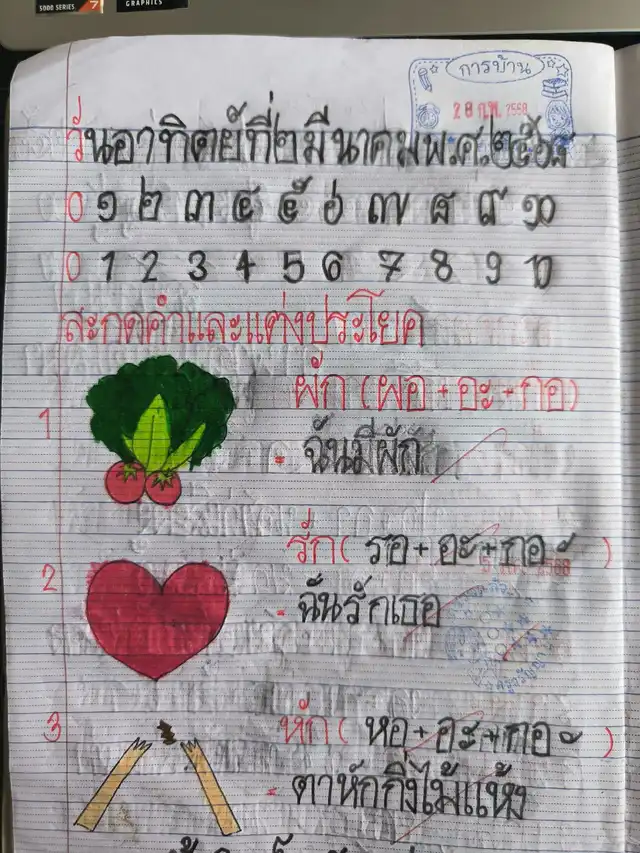 5000 SERIES 7
GRAPHICS
การบ้าน
28 ก.พ. 2568
วันอาทิตย์ที่๒มีนาคมพ.ศ.๒๕๖๘
0 ๑ ๒ ๓ ๔ ๕ ๖ ๗ ๘ ๙ ๑๐
0 1 2 3 4 5 6 7 8 9 10
สะกดคำและแต่งประโยค
1 ผัก (ผอ + อะ + กอ)
- ฉันมีผัก
2 รัก ( รอ + อะ + กอ )
- ฉันรักเธอ
3 หัก ( หอ + อะ + กอ )
- ตาหักกิ่งไม้แห้ง